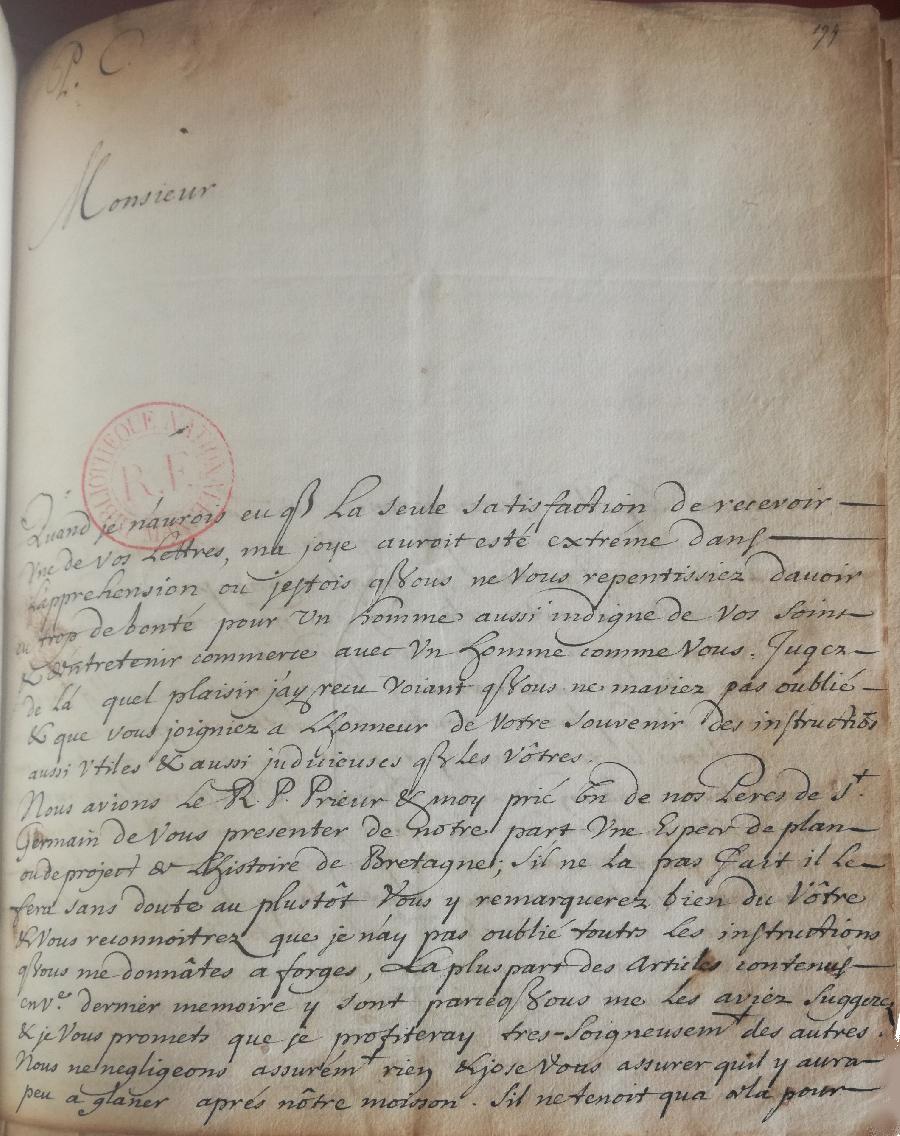 P. C.
194
Monsieur
BIBLIOTHEQUE NATIONALE
R.F.
Quand je n'aurois eu q̃ La seule satisfaction de recevoir
Vne de vos Lettres, ma joye auroit esté extréme dans
L'apprehension ou j'estois q̃ Vous ne Vous repentissiez davoir
eu trop de bonté pour Vn homme aussi indigne de Vos soins
& d'entretenir commerce avec Vn homme comme Vous. Jugez
de là quel plaisir j'ay recu Voiant q̃ Vous ne maviez pas oublié
& que vous joigniez a L'honneur de Votre souvenir des instructiõs
aussi Vtiles & aussi judicieuses q̃ les vôtres.
Nous avions Le R. P. Prieur & moy prié Un de nos Peres de St.
Germain de Vous presenter de notre part Vne Espece de plan
ou de project de L'histoire de Bretagne; Sil ne la pas fait il le
fera sans doute au plustôt Vous y remarquerez bien du Vôtre
& Vous reconnoitrez que je n'ay pas oublié toutes Les instructions
q̃ Vous me donnâtes a forges, La plus part des Articles contenus
en vre. dernier memoire y sont parce q̃ Vous me les aviez Suggerez
& je Vous promets que je profiteray tres-soigneusemt des autres.
Nous ne negligeons assurémt rien & jose Vous assurer quil y aura
peu à glaner aprés nôtre moisson. Sil ne tenoit qua cela pour